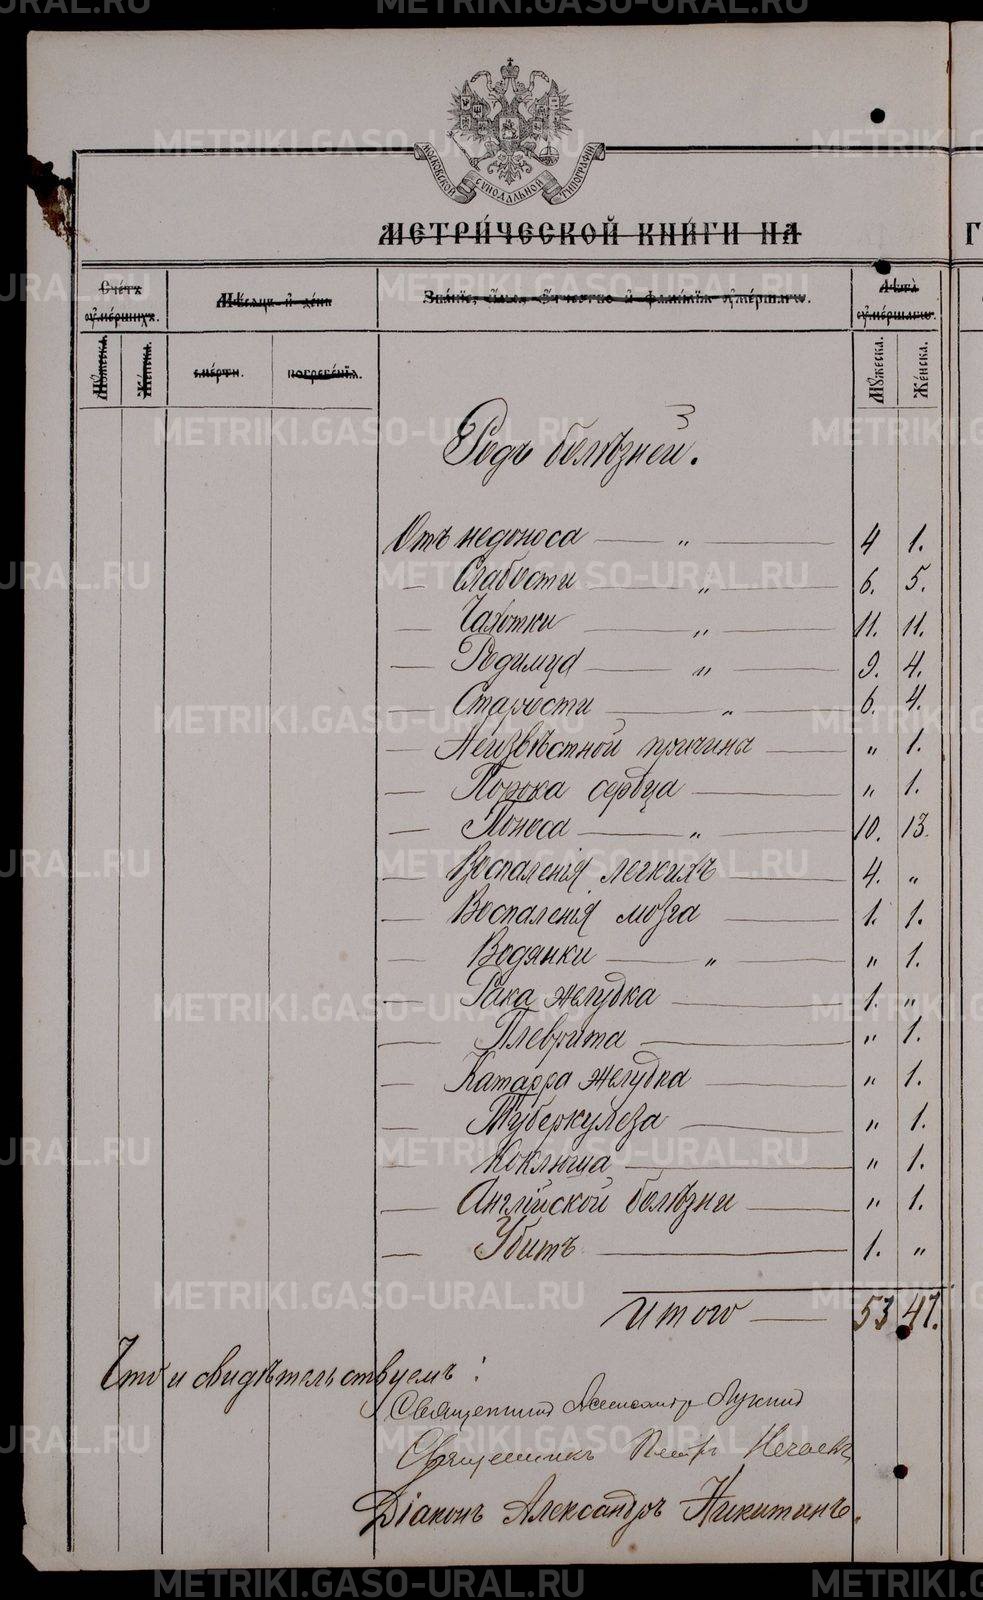 МОСКОВСКОЙ СУНОДАЛЬНОЙ ТИПОГРАФІИ
МЕТРИ́ЧЕСКОЙ КНИ́ГИ НА
Г
Сче́тъ ᲂу҆ме́ршихъ.
Мѣ́сяцъ и҆ де́нь
Зва́нїе, и҆́мя, ѻ҆́тчество и҆ фамѝлїя ᲂу҆ме́ршагѡ.
Лѣ́та ᲂу҆ме́ршагѡ.
Мꙋ́жеска.
Же́нска.
сме́рти.
погребе́нїѧ.
Мꙋ́жеска.
Же́нска.
3
Родъ болѣзней.
Отъ недоноса — „ — 4 1.
— Слабости — „ — 6. 5.
— Чахотки — „ — 11. 11.
— Родимца — „ — 9. 4.
— Старости — „ — 6. 4.
— Неизвѣстной причины — „ 1.
— Порока сердца — „ 1.
— Поноса — „ — 10. 13.
— Воспаленія легкихъ — 4. „
— Воспаленія мозга — 1. 1.
— Водянки — „ — „ 1.
— Рака желудка — 1. „
— Плеврита — „ 1.
— Катарра желудка — „ 1.
— Туберкулеза — „ 1.
— Коклюша — „ 1.
— Англійской болѣзни — „ 1.
— Убитъ — 1. „
Итого — 53 47.
Что и свидѣтельствуемъ:
Священникъ Александръ Лукинъ
Священникъ Петръ Нечаевъ
Діаконъ Александръ Никитинъ.
METRIKI.GASO-URAL.RU